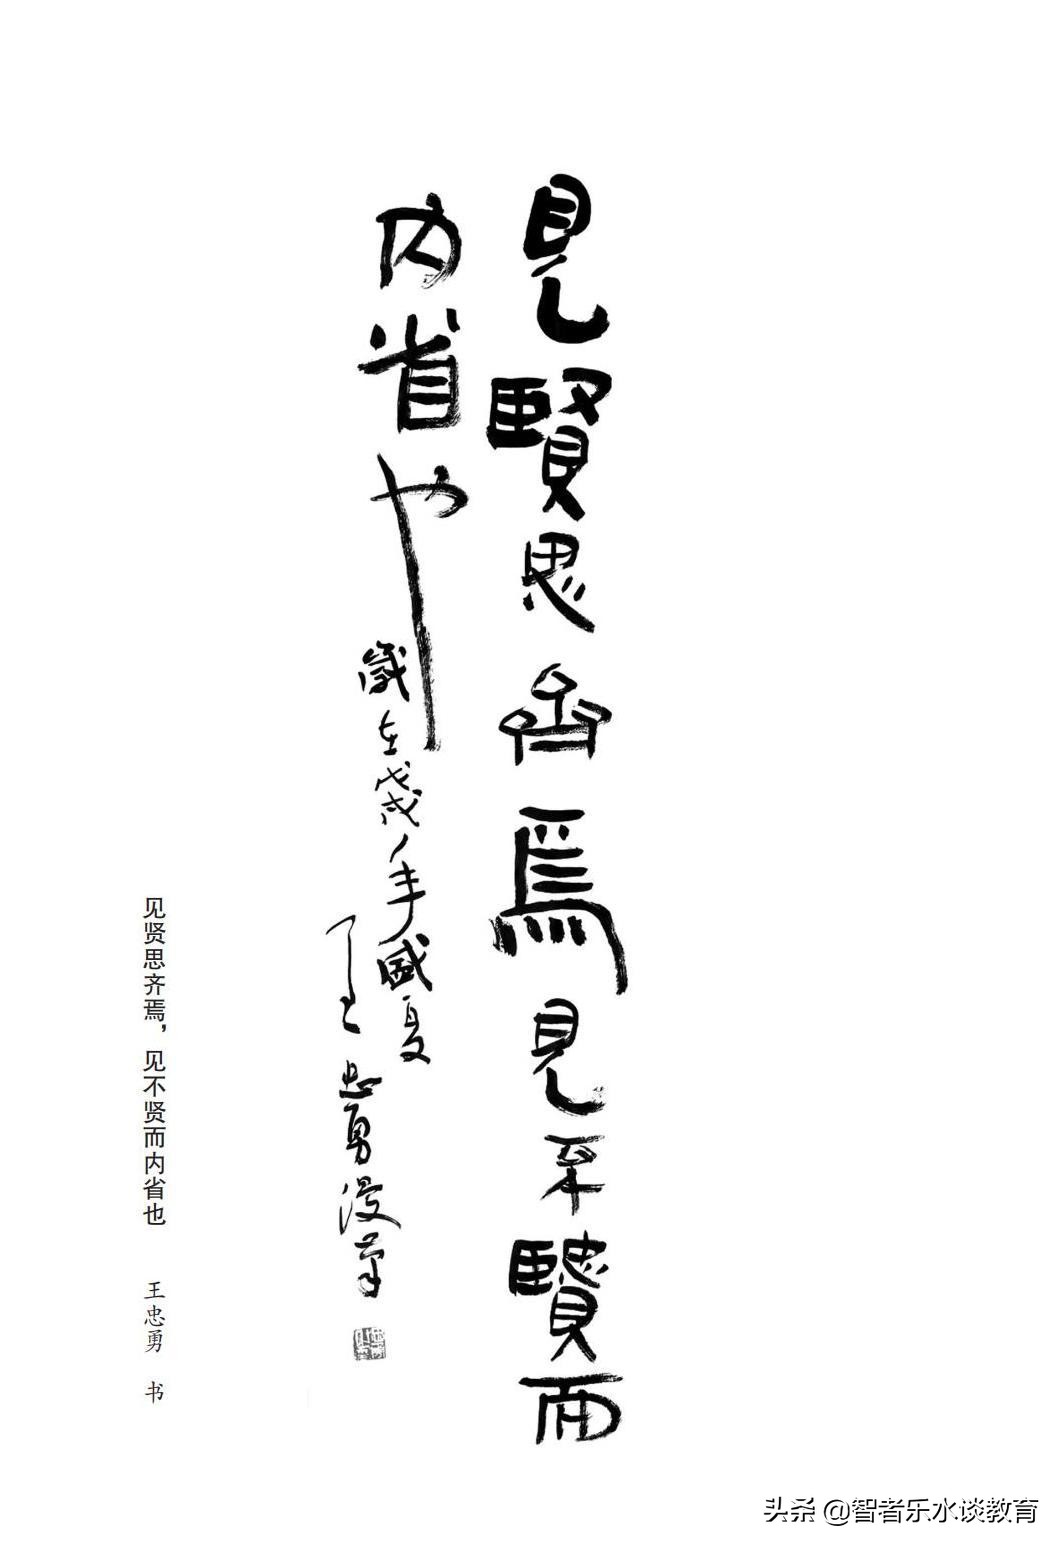 見賢思齊焉見不賢而
内省也
歲在戊戌年盛夏
王忠勇漫筆
见贤思齐焉，见不贤而内省也 王忠勇 书
头条 @智者乐水谈教育